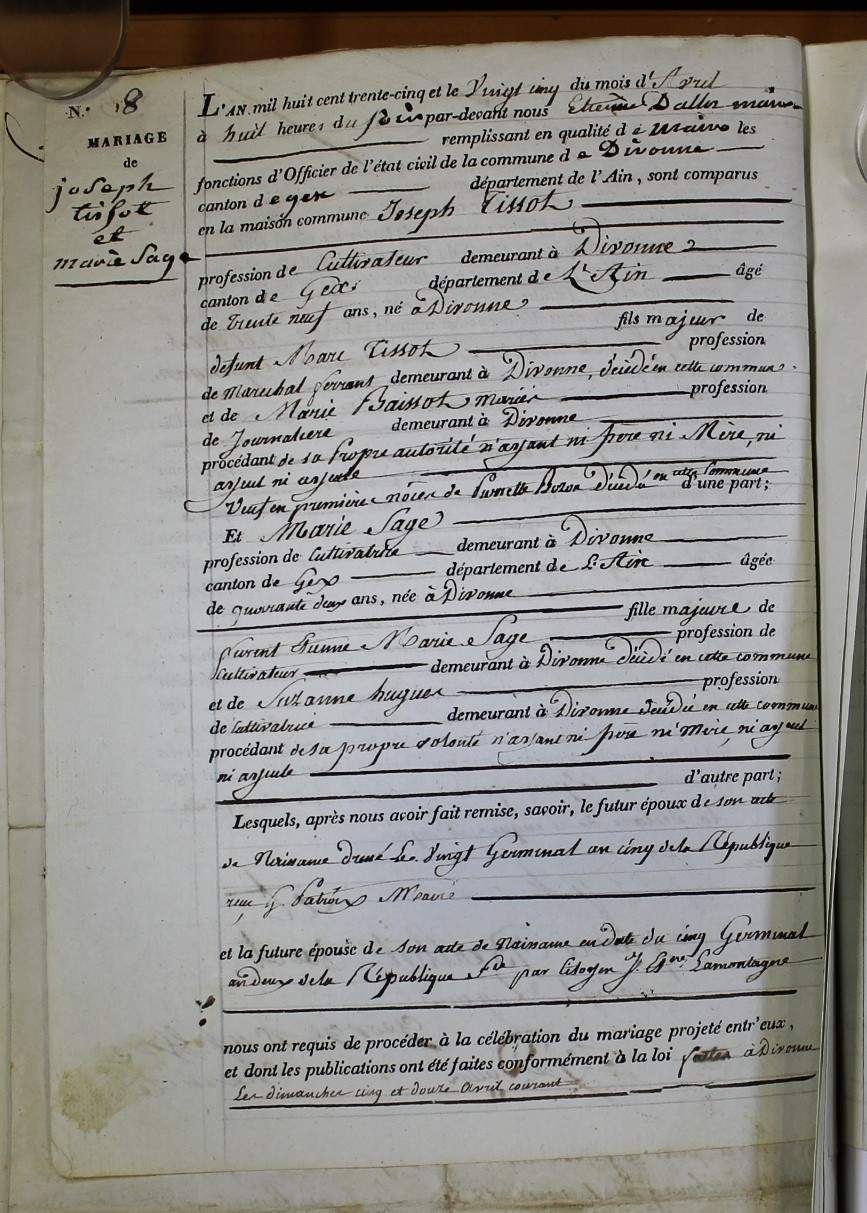 N.° 8
MARIAGE
de
joseph
tissot
et
marie Sage
L'AN mil huit cent trente-cinq et le Vingt cinq du mois d'Avril
à huit heures du soir par-devant nous Etienne Dalloz maire
remplissant en qualité de maire les
fonctions d'Officier de l'état civil de la commune de Divonne
canton de gex département de l'Ain, sont comparus
en la maison commune Joseph Tissot
profession de Cultivateur demeurant à Divonne
canton de Gex département de L'Ain âgé
de Trente neuf ans, né à Divonne
fils majeur de
defunt Marc Tissot profession
de Marechal ferrant demeurant à Divonne, décédé en cette commune
et de Marie Baissot mariés profession
de Journaliere demeurant à Divonne
procédant de sa Propre autorité n'ayant ni pere ni Mère, ni
ayeul ni ayeule
Veuf en premières nôces de Pernette décédé en cette Commune d'une part;
Et Marie Sage
profession de Cultivatrice demeurant à Divonne
canton de Gex département de L'Ain âgée
de quarante deux ans, née à Divonne
fille majeure de
furent Marie Sage profession de
Cultivateur demeurant à Divonne décédé en cette commune
et de Suzanne hugues profession
de Cultivatrice demeurant à Divonne décédé en cette commune
procédant de sa propre volonté n'ayant ni père ni Mère, ni ayeul
ni ayeule d'autre part;
Lesquels, après nous avoir fait remise, savoir, le futur époux de son acte
de Naissance Le Vingt Germinal an cinq de la République
Maire
et la future épouse de son acte de Naissance en date du cinq Germinal
an deux de la République par Citoyen Lamontagne
nous ont requis de procéder à la célébration du mariage projeté entr'eux,
et dont les publications ont été faites conformément à la loi faites à Divonne
Les dimanches cinq et douze Avril courant